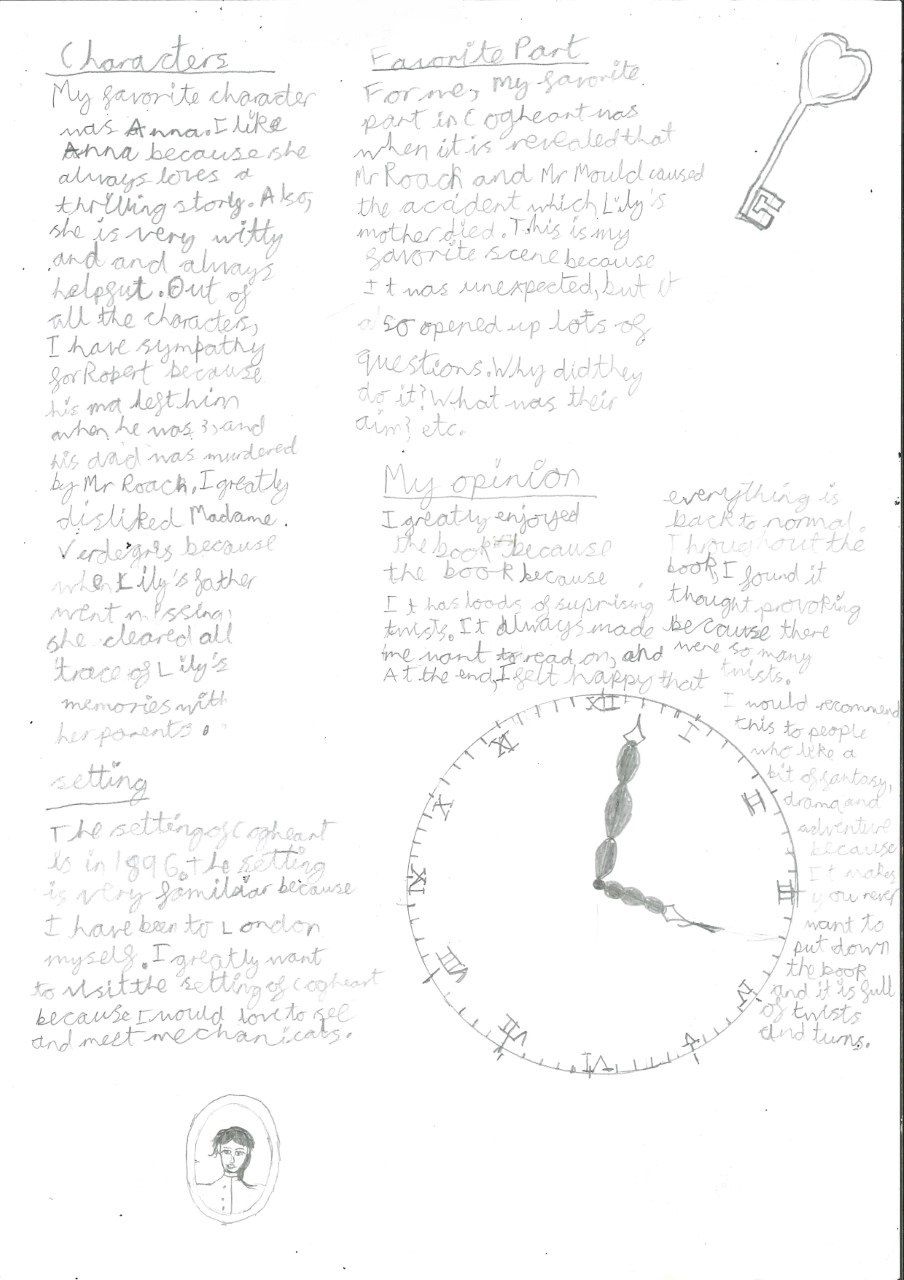 Characters
My favorite character
was Anna. I like
Anna because she
always loves a
thrilling story. Also,
she is very witty
and and always
helpful. Out of
all the characters,
I have sympathy
for Robert because
his ma left him
when he was 3, and
his dad was murdered
by Mr Roach. I greatly
disliked Madame.
Verdegris because
when Lily's father
went missing,
she cleared all
trace of Lily's
memories with
her parents.
setting
The setting of Cogheart
is in 1896. the setting
is very familiar because
I have been to London
myself. I greatly want
to visit the setting of cogheart
because I would love to see
and meet mechanicals.
Favorite Part
For me, My favorite
part in Cogheart was
when it is revealed that
Mr Roach and Mr Mould caused
the accident which Lily's
mother died. This is my
favorite scene because
It was unexpected, but it
also opened up lots of
questions. Why did they
do it? What was their
aim? etc.
My opinion
I greatly enjoyed
the book because
the book because
It has loads of suprising
twists. It always made
me want to read on, and
At the end, I felt happy that
everything is
back to normal.
Throughout the
book, I found it
thought provoking
because there
were so many
twists.
I would recommend
this to people
who like a
bit of fantasy,
drama and
adventure
because
It makes
you never
want to
put down
the book
and it is full
of twists
and turns.
XII
I
II
III
IV
V
VI
VII
VIII
IX
X
XI